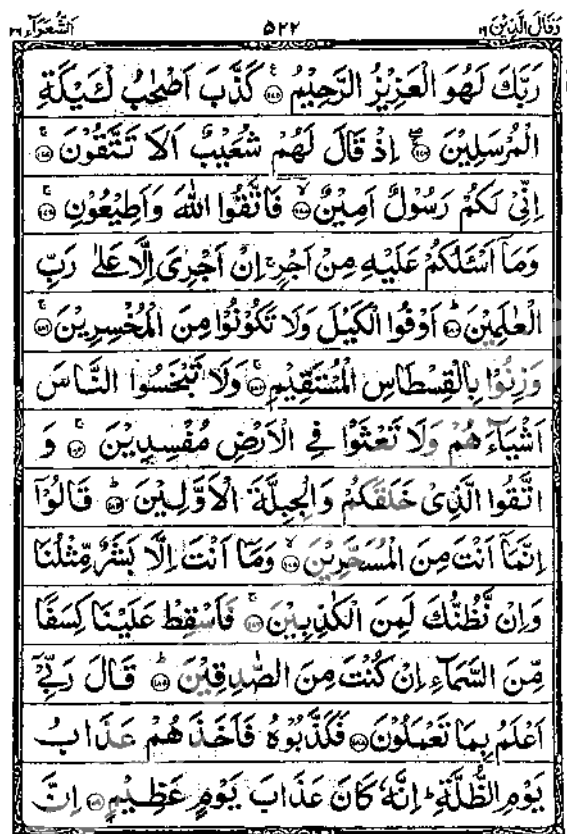 وَقَالَ الَّذِيْنَ ١٩ ٥٢٢ اَلشُّعَرَآء ٢٦
رَبَّكَ لَهُوَ الْعَزِيْزُ الرَّحِيْمُ ۝ كَذَّبَ اَصْحٰبُ لْـَٔيْكَةِ
الْمُرْسَلِيْنَ ۝ اِذْ قَالَ لَهُمْ شُعَيْبٌ اَلَا تَتَّقُوْنَ ۝
اِنِّيْ لَكُمْ رَسُوْلٌ اَمِيْنٌ ۝ فَاتَّقُوا اللّٰهَ وَاَطِيْعُوْنِ ۝
وَمَآ اَسْـَٔلُكُمْ عَلَيْهِ مِنْ اَجْرٍ اِنْ اَجْرِيَ اِلَّا عَلٰى رَبِّ
الْعٰلَمِيْنَ ۝ اَوْفُوا الْكَيْلَ وَلَا تَكُوْنُوْا مِنَ الْمُخْسِرِيْنَ ۝
وَزِنُوْا بِالْقِسْطَاسِ الْمُسْتَقِيْمِ ۝ وَلَا تَبْخَسُوا النَّاسَ
اَشْيَآءَهُمْ وَلَا تَعْثَوْا فِي الْاَرْضِ مُفْسِدِيْنَ ۝ وَ
اتَّقُوا الَّذِيْ خَلَقَكُمْ وَالْجِبِلَّةَ الْاَوَّلِيْنَ ۝ قَالُوْٓا
اِنَّمَآ اَنْتَ مِنَ الْمُسَحَّرِيْنَ ۝ وَمَآ اَنْتَ اِلَّا بَشَرٌ مِّثْلُنَا
وَاِنْ نَّظُنُّكَ لَمِنَ الْكٰذِبِيْنَ ۝ فَاَسْقِطْ عَلَيْنَا كِسَفًا
مِّنَ السَّمَآءِ اِنْ كُنْتَ مِنَ الصّٰدِقِيْنَ ۝ قَالَ رَبِّيْٓ
اَعْلَمُ بِمَا تَعْمَلُوْنَ ۝ فَكَذَّبُوْهُ فَاَخَذَهُمْ عَذَابُ
يَوْمِ الظُّلَّةِ ؕ اِنَّهٗ كَانَ عَذَابَ يَوْمٍ عَظِيْمٍ ۝ اِنَّ